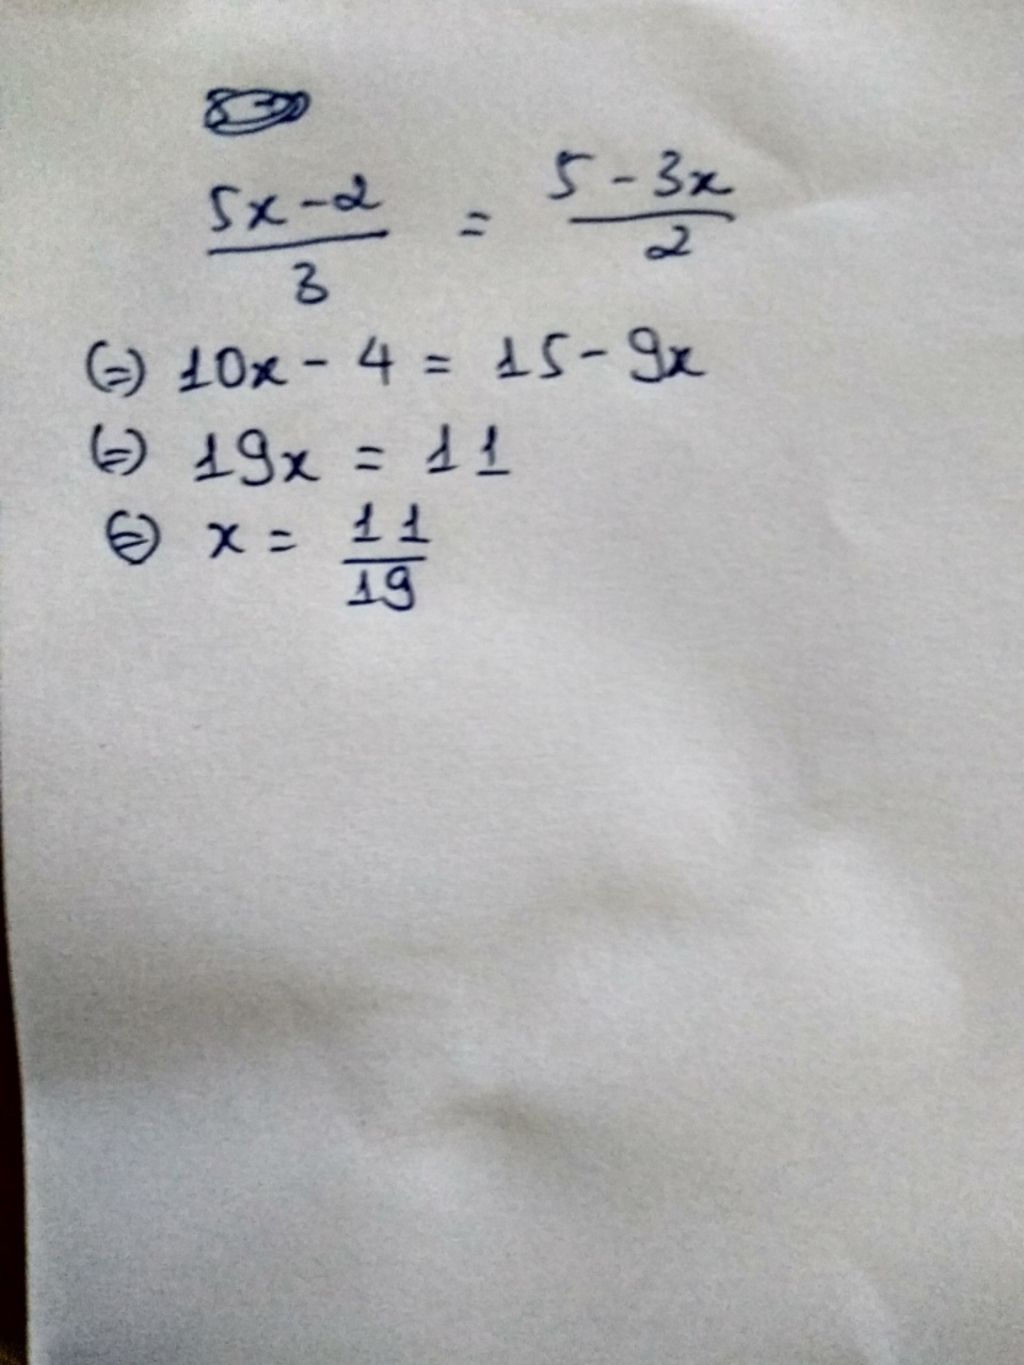 (5x-2)/3 = (5-3x)/2
(=) 10x - 4 = 15 - 9x
(=) 19x = 11
(=) x = 11/19